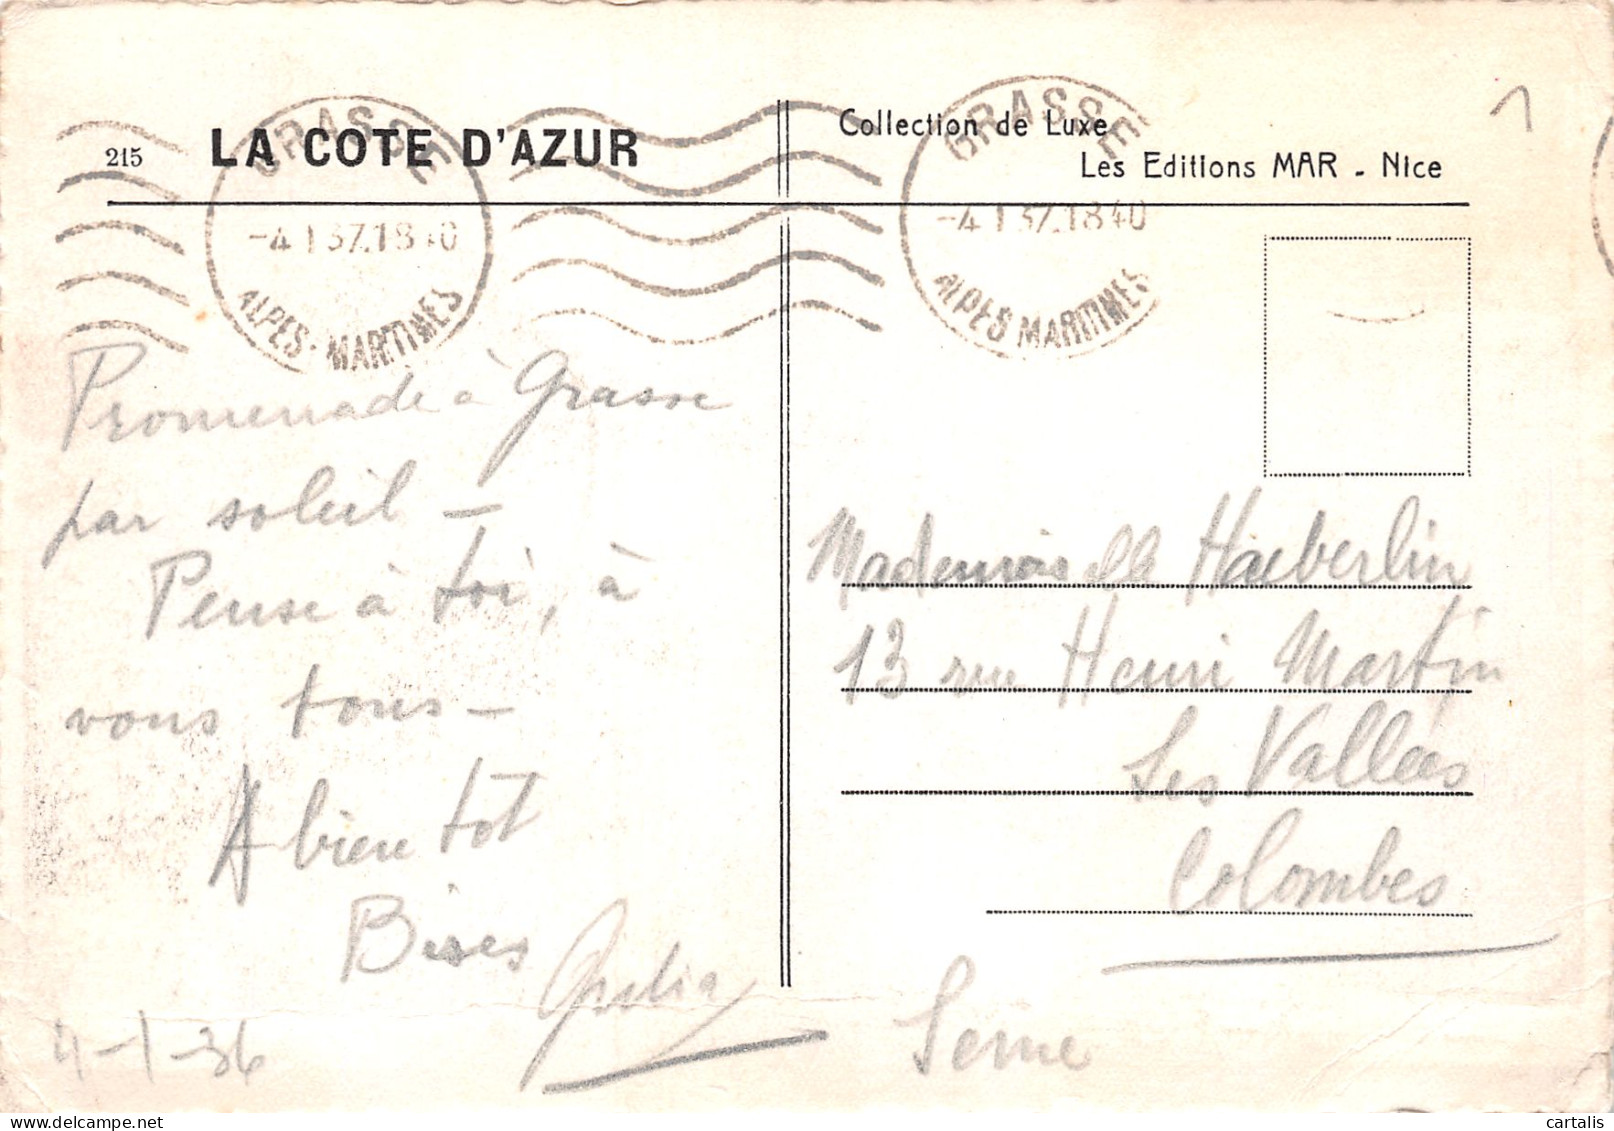 215 LA COTE D'AZUR
Collection de Luxe
Les Editions MAR - Nice
GRASSE
-4 1 37.1840
ALPES-MARITIMES
GRASSE
-4 1 37.1840
ALPES MARITIMES
Promenade à Grasse
par soleil -
Pense à toi, à
vous tous -
A bientôt
Bises
4-1-36
Mademoiselle Haeberlin
13 rue Henri Martin
Les Vallées
Colombes
Seine
cartalis